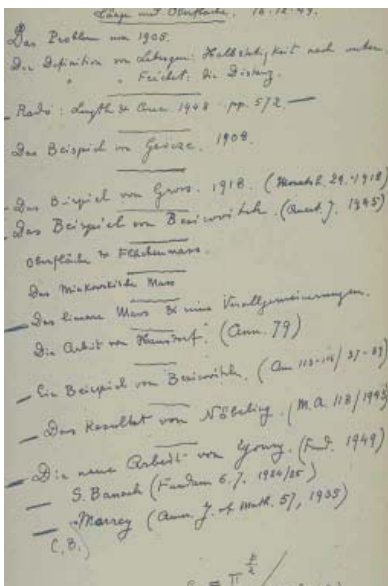 Länge und Oberfläche. 16-12-49.
Das Problem um 1905.
Die Definition von Lebesgue: Halbstetigkeit nach unten
" " Fréchet: die Distanz.
Radó: Length & Area 1948 pp. 572.
Das Beispiel von Geöcze. 1908.
Das Beispiel von Gross. 1918. (Monatsh. 29.-1918)
Das Beispiel von Besicovitch. (Quart. J. 1945)
Oberfläche & Flächenmass.
Das Minkowskische Mass
Das lineare Mass & eine Verallgemeinerungen.
Die Arbeit von Hausdorf. (Ann. 79)
Ein Beispiel von Besicovitch. (
Das Resultat von Nöbeling. (M.A. 118/
Die neue Arbeit von Young. (Fund. 1949)
S. Banach (Fundam 6.7. 1924/25)
Morrey (Amer. J. of Math. 57, 1935)
(C.B.)